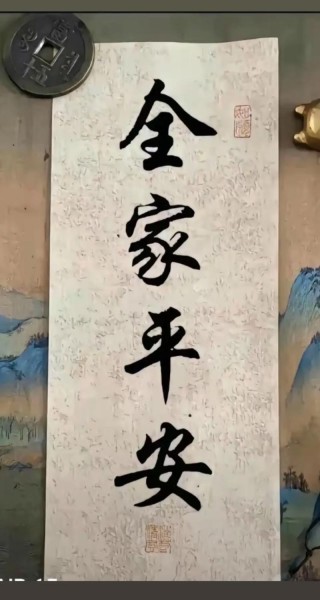 全家平安